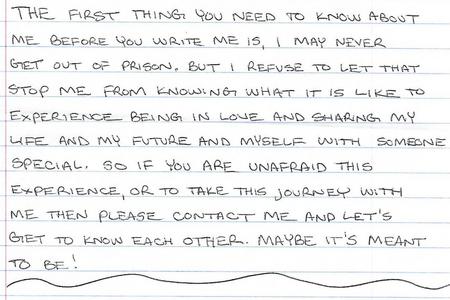 THE FIRST THING YOU NEED TO KNOW ABOUT
ME BEFORE YOU WRITE ME IS, I MAY NEVER
GET OUT OF PRISON. BUT I REFUSE TO LET THAT
STOP ME FROM KNOWING WHAT IT IS LIKE TO
EXPERIENCE BEING IN LOVE AND SHARING MY
LIFE AND MY FUTURE AND MYSELF WITH SOMEONE
SPECIAL. SO IF YOU ARE UNAFRAID THIS
EXPERIENCE, OR TO TAKE THIS JOURNEY WITH
ME THEN PLEASE CONTACT ME AND LET'S
GET TO KNOW EACH OTHER. MAYBE IT'S MEANT
TO BE!